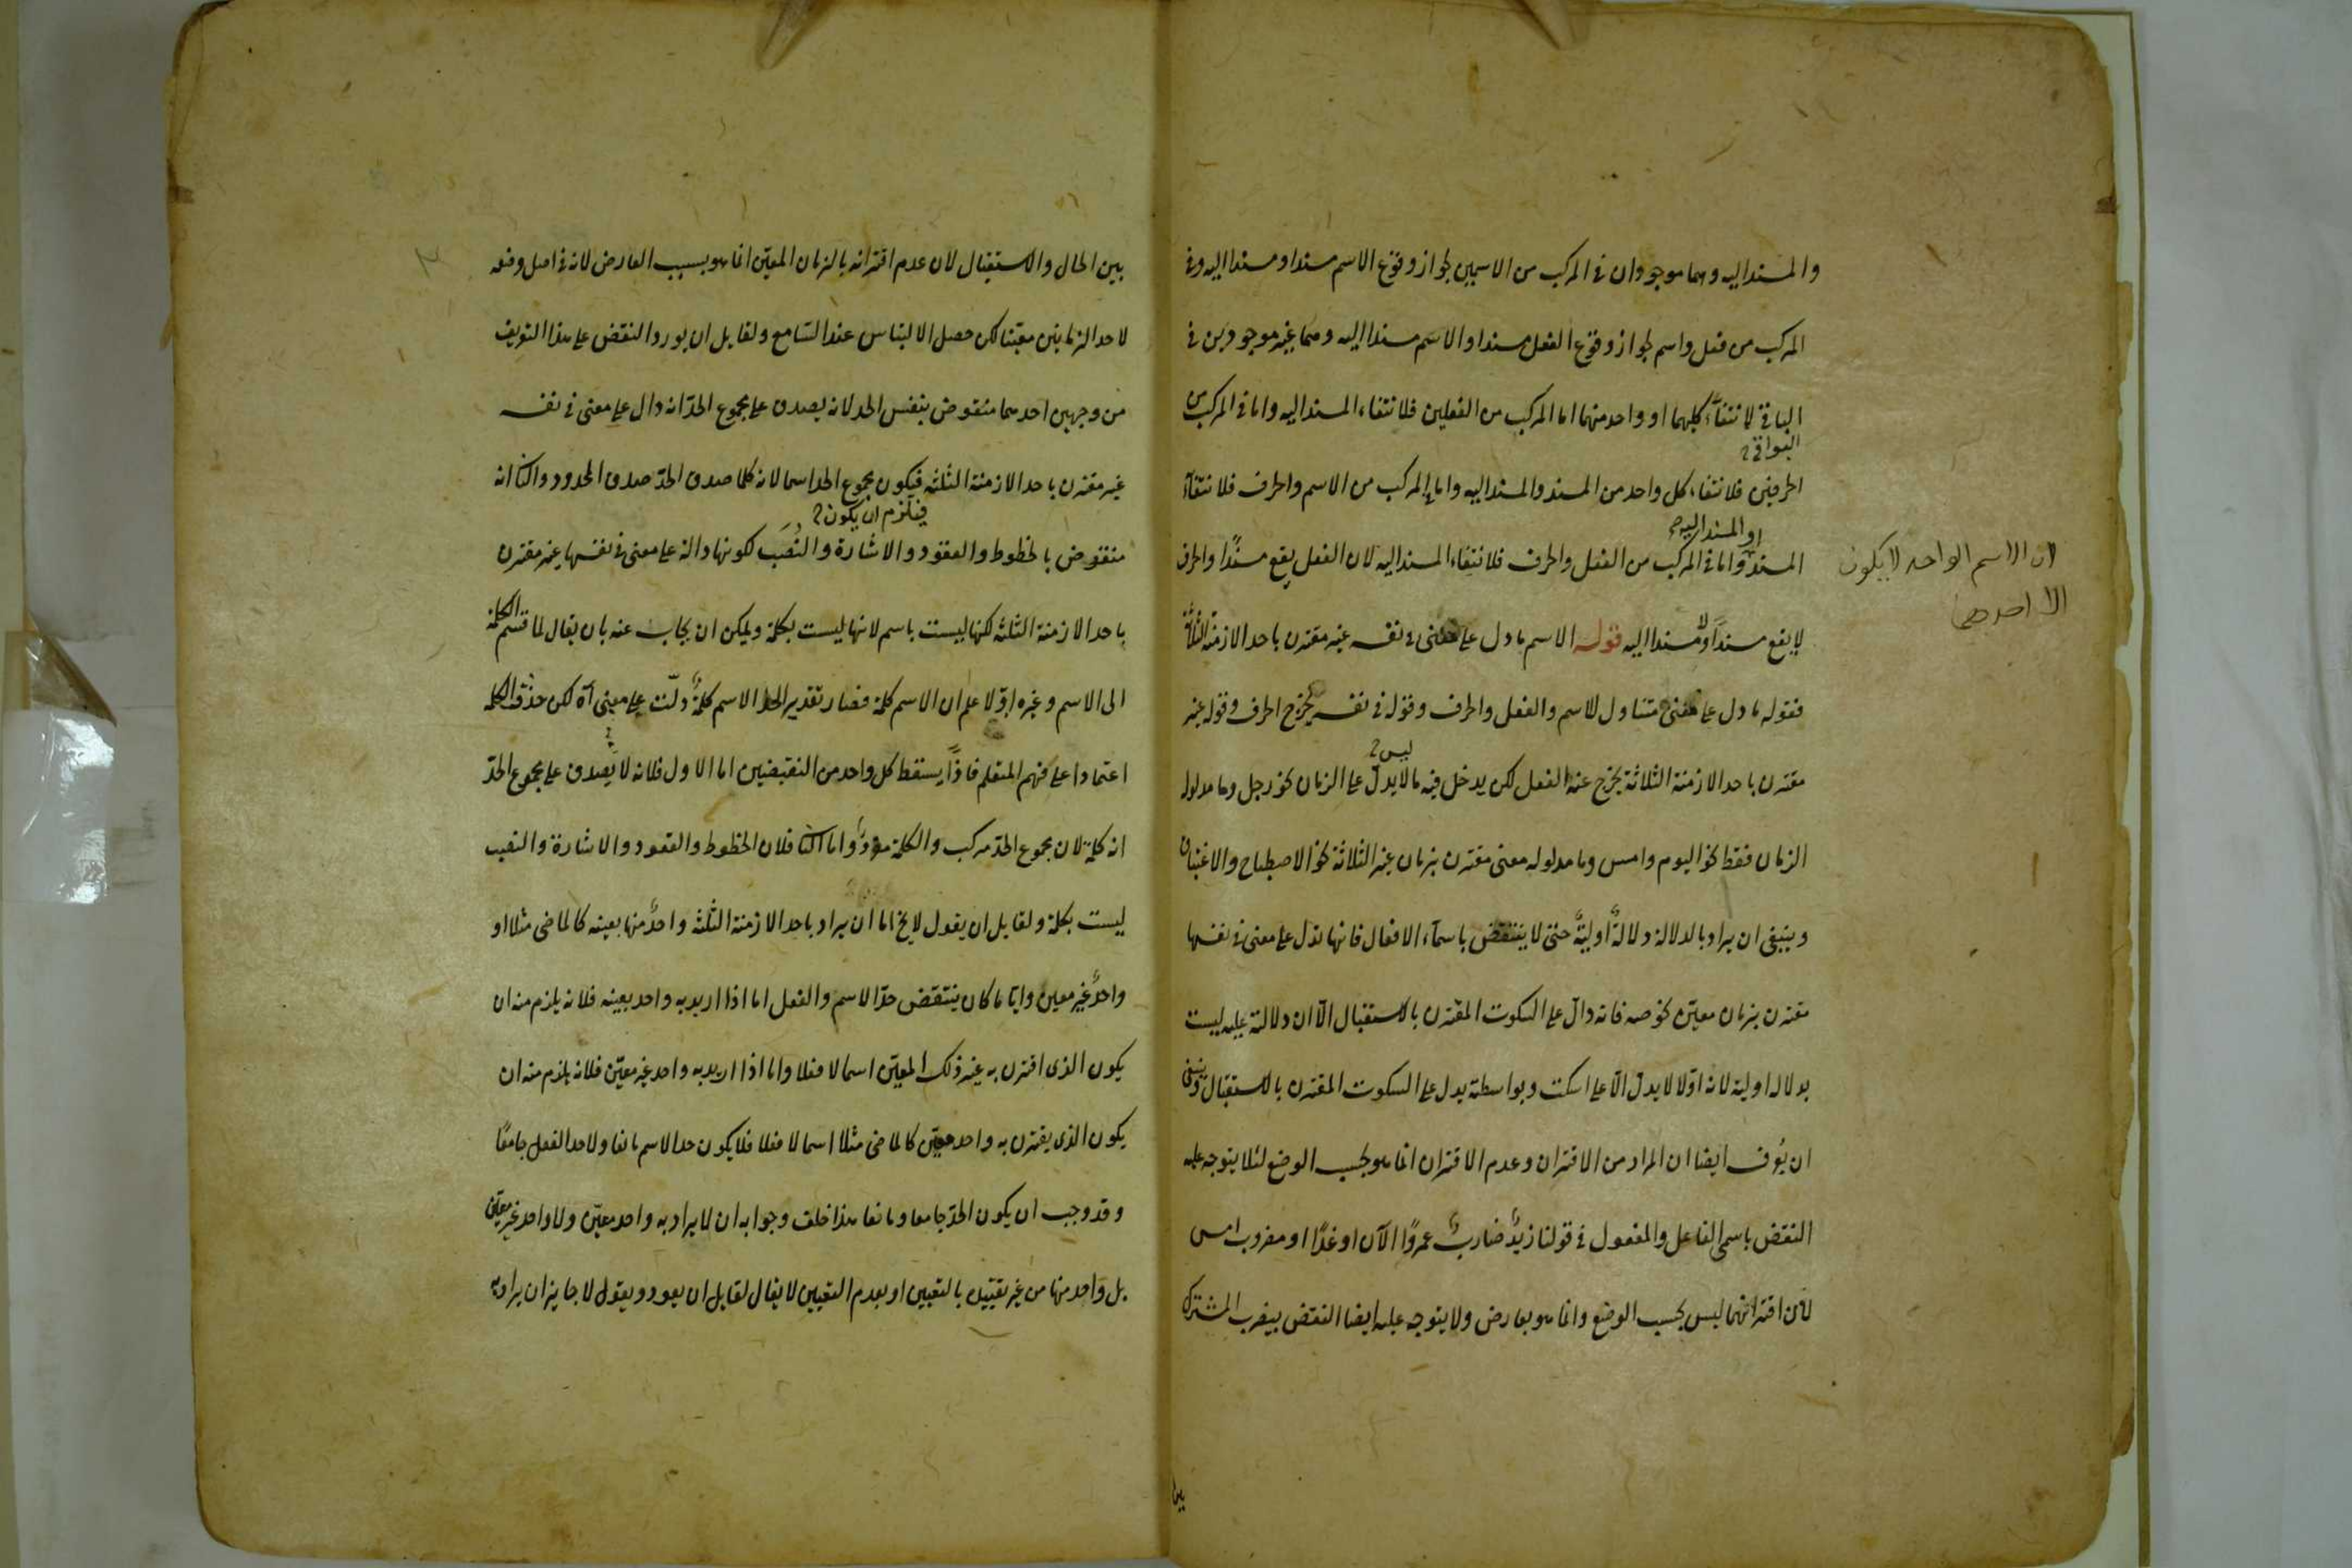 والمسند اليه وهما موجودان في المركب من الاسمين لجواز وقوع الاسم مسندا ومسندا اليه وفي
المركب من فعل واسم لجواز وقوع الفعل مسندا والاسم مسندا اليه وهما غير موجودين في
الباقي لانتفاء كليهما او واحد منهما اما المركب من الفعلين فلانتفاء المسند اليه واما في المركب من
البواقي
الحرفين فلانتفاء كل واحد من المسند والمسند اليه واما المركب من الاسم والحرف فلانتفاء
او المسند اليه
المسند واما في المركب من الفعل والحرف فلانتفاء المسند اليه لان الفعل يقع مسندًا والحرف
لان الاسم الواحد لا يكون
الا احدهما
لا يقع مسنداً ولا مسندا اليه قوله الاسم ما دل على معنى في نفسه غير مقترن باحد الازمنة الثلاثة
فقوله ما دل على معنى متناول للاسم والفعل والحرف وقوله في نفسه يخرج الحرف وقوله غير
ليس
مقترن باحد الازمنة الثلاثة يخرج عنه الفعل لكن يدخل فيه ما لا يدل على الزمان نحو رجل وما مدلوله
الزمان فقط نحو اليوم وامس وما مدلوله معنى مقترن بزمان غير الثلاثة نحو الاصطباح والاغتباق
وينبغي ان يراد بالدلالة دلالةً اوليةً حتى لا ينتقض باسماء الافعال فانها تدل على معنى في نفسها
مقترن بزمان معيّن نحو صه فانه دالّ على السكوت المقترن بالاستقبال الّا ان دلالته عليه ليست
بدلالة اولية لانه اوّلا لا يدلّ الّا على اسكت وبواسطته يدل على السكوت المقترن بالاستقبال وينبغي
ان يُعرف ايضا ان المراد من الاقتران وعدم الاقتران انما هو بحسب الوضع لئلا يتوجه عليه
النقض باسمي الفاعل والمفعول في قولنا زيدٌ ضاربٌ عمروًا الآن او غدًا او مضروب امس
لان اقترانهما ليس بحسب الوضع وانما هو بعارض ولا يتوجه عليه ايضا النقض بيضرب المشترك
بين
بين الحال والاستقبال لان عدم اقترانه بالزمان المعيّن انما هو بسبب العارض لانه في اصل وضعه
لاحد الزمانين معيّنا لكن حصل الالتباس عند السّامع ولقايل ان يورد النقض على هذا التعريف
من وجهين احدهما منقوض بنفس الحد لانه يصدق على مجموع الحدّ انه دال على معنى في نفسه
غير مقترن باحد الازمنة الثلثه فيكون مجموع الحد اسما لانه كلما صدق الحدّ صدق المحدود والثاني انه
فيلزم ان يكون
منقوض بالخطوط والعقود والاشارة والنُصَب لكونها دالة على معنى في نفسها غير مقترن
باحد الازمنة الثلثه لكنها ليست باسم لانها ليست بكلمة ويمكن ان يجاب عنه بان يقال لما قسم الكلمة
الى الاسم وغيره اوّلا علم ان الاسم كلمة فصار تقدير الحد الاسم كلمةٌ دلّت على معنى آه لكن حذفت الكلمة
اعتمادا على فهم المتعلم فاذًا يسقط كل واحد من النقيضين اما الاول فلانه لا يصدق على مجموع الحدّ
انه كلمة لان مجموع الحدّ مركب والكلمة مفردٌ واما الثاني فلان الخطوط والعقود والاشارة والنصب
ليست بكلمة ولقايل ان يقول لا يخ اما ان يراد باحد الازمنة الثلثه واحدٌ منها بعينه كالماضي مثلا او
واحدٌ غير معين وايّا ما كان ينتقض حدّ الاسم والفعل اما اذا اريد به واحد بعينه فلانه يلزم منه ان
يكون الذي اقترن به غير ذلك المعيّن اسما لا فعلا واما اذا اريد به واحد غير معيّن فلانه يلزم منه ان
يكون الذي يقترن به واحد معيّن كالماضي مثلا اسما لا فعلا فلا يكون حد الاسم مانعا ولا حد الفعل جامعًا
وقد وجب ان يكون الحدّ جامعا ومانعا هذا خلف وجوابه ان لا يراد به واحد معيّن ولا واحد غير معيّن
بل واحد منها من غير تقييده بالتعيين او بعدم التعيين لا يقال لقايل ان يعود ويقول لا جايز ان يراد به